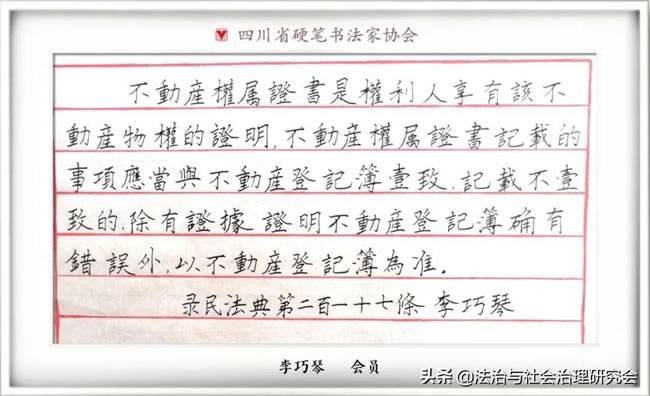 四川省硬笔书法家协会
不動産權属證書是權利人享有該不
動産物權的證明,不動産權属證書記載的
事項應當與不動産登記簿壹致.記載不壹
致的,除有證據證明不動産登記簿确有
錯誤外,以不動産登記簿為准。
录民法典第二百一十七條 李巧琴
李巧琴 会员
头条 @法治与社会治理研究会